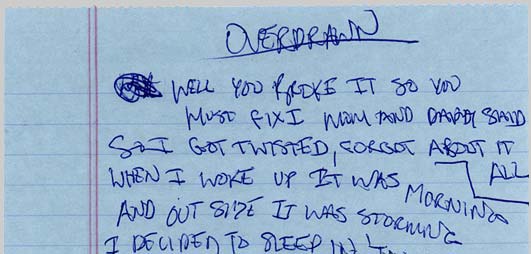 OVERDRAWN
WELL YOU BROKE IT SO YOU
MUST FIX I MOM AND DADDY SAID
SO I GOT TWISTED, FORGOT ABOUT IT
ALL
WHEN I WOKE UP IT WAS MORNING
AND OUT SIDE IT WAS STORMING
I DECIDED TO SLEEP IN